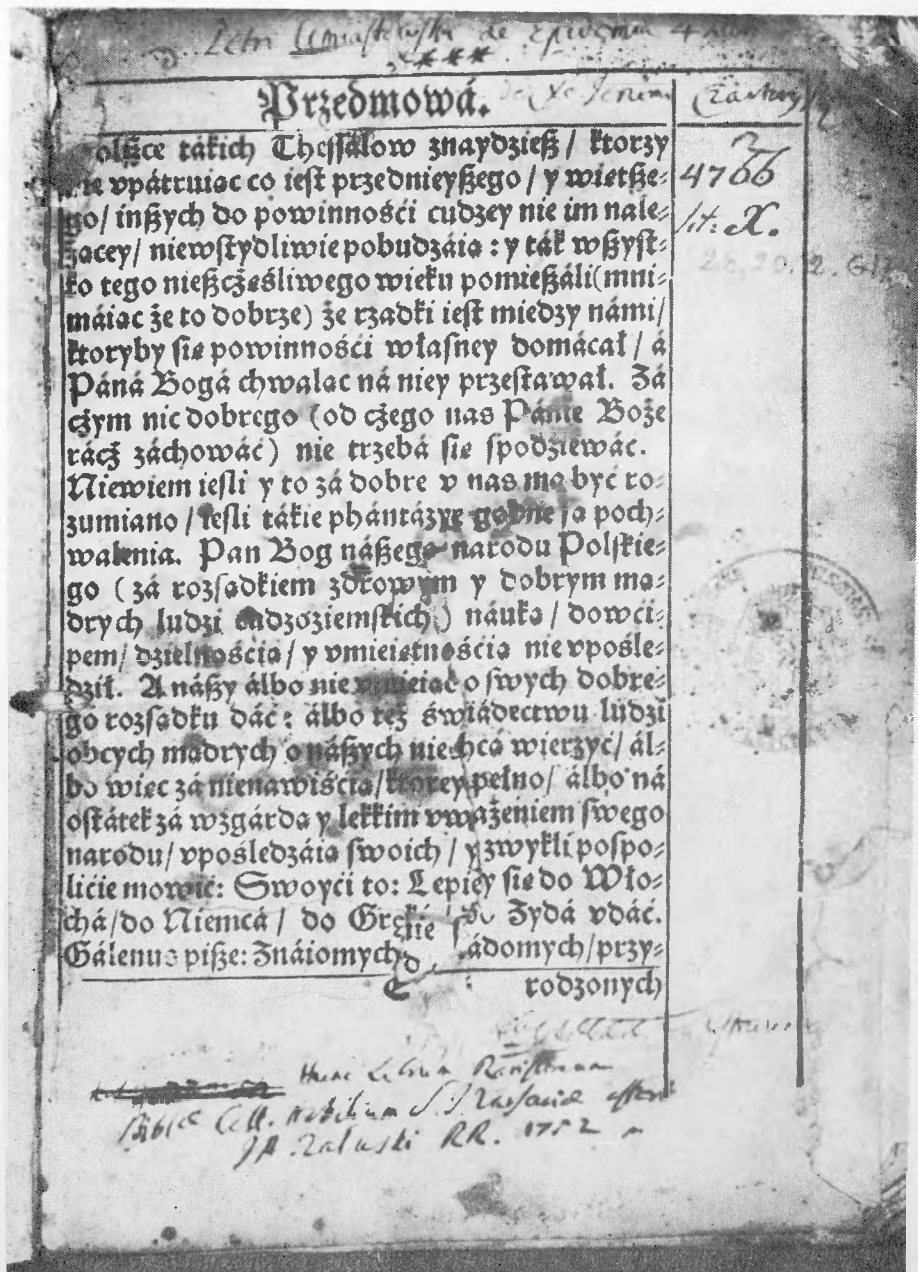 Petri Umiastowski de
***
Przedmowá.
olßce tákich Thessálow znaydzieß / ktorzy
nie vpátruiac co iest przednieyßego / y wietße-
go / inßych do powinnośći cudzey nie im nale-
zacey / niewstydliwie pobudzáia : y ták wßyst-
ko tego nießcżeśliwego wieku pomießáli (mni-
máiac że to dobrze) że rzadki iest miedzy námi /
ktoryby sie powinnośći własney domácał / á
Páná Bogá chwalac ná niey przestawał. Zá
cżym nic dobrego (od cżego nas Pánie Boże
rácż záchowáć) nie trzebá sie spodziewáć.
Niewiem iesli y to zá dobre v nas ma być ro-
zumiano / iesli tákie phántázye godne sa poch-
walenia. Pan Bog náßego narodu Polskie-
go (zá rozsadkiem zdrowym y dobrym ma-
drych ludzi cudzoziemskich) náuka / dowci-
pem / dzielnośćia / y vmieietnośćia nie vpośle-
dził. A náßy álbo nie vmieiac o swych dobre-
go rozsadku dáć : álbo też świádectwu ludzi
obcych madrych o náßych niechca wierzyć / ál-
bo wiec zá nienawiśćia / ktorey pełno / álbo ná
ostátek zá wzgárda y lekkim vważeniem swego
narodu / vpośledzáia swoich / y zwykli pospo-
lićie mowić : Swoyći to : Lepiey sie do Wło-
chá / do Niemcá / do Gre do Zydá vdáć.
Gálenus piße : Znáiomych ádomych / przy-
rodzonych
4766
lit: X.
Hunc Librum
Biblæ Coll. Nobilium S. J. Varsaviæ
JA. Zaluski RR. 1752